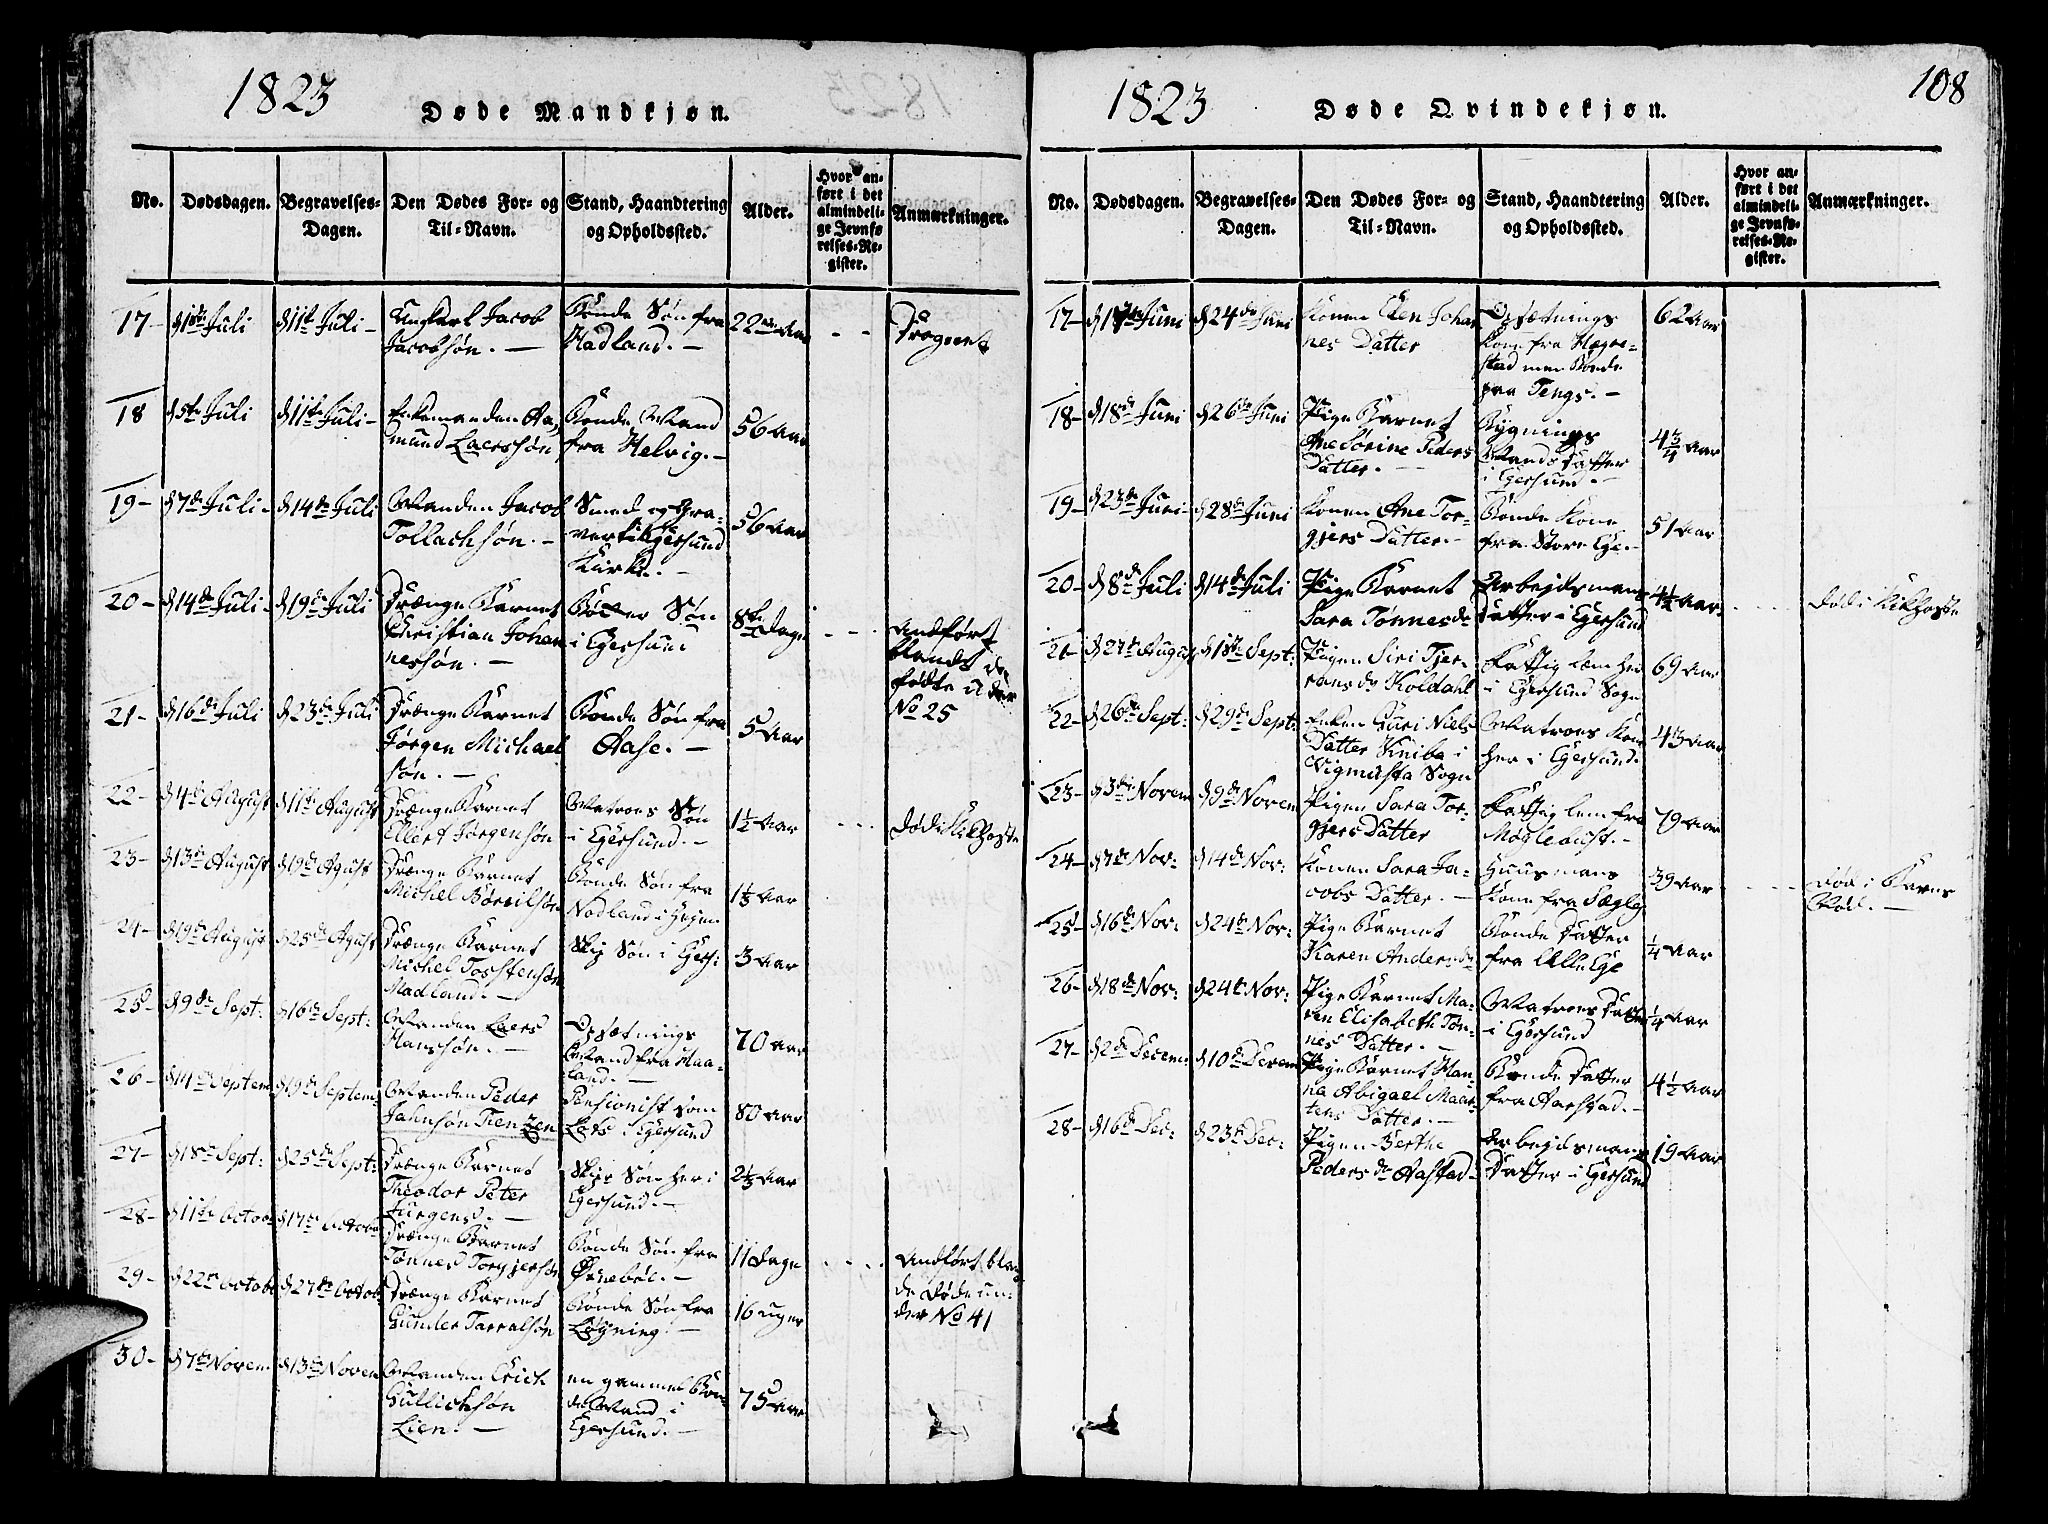 1823
Døde Mandkjøn.
No.
Dødsdagen.
Begravelses-
Dagen.
Den Dødes For- og
Til-Navn.
Stand, Haandtering
og Opholdssted.
Alder.
Hvor an-
ført i det
almindeli-
ge Jevnfø-
relses-Re-
gister.
Anmærkninger.
17-
d 1ste Juli
d 11te Juli -
Ungkarl Jacob
Jacobsøn. -
Bonde Søn fra
Hadland. -
22 Aar
18
d 5te Juli
d 11te Juli -
Enkemanden Aa-
mund Laersøn
Bonde Mand
fra Helvig. -
56 Aar
19-
d 7de Juli -
d 14de Juli
Manden Jacob
Tollachsøn. -
Smed og Gra-
ver i Egersund
Kirke. -
56 Aar
20-
d 14de Juli -
d 19de Juli
Drænge Barnet
Christian Johan-
nessøn. -
Søn
i Egersund
8te Dage
Andført
blandt de
fødte under
No 25
21-
d 16de Juli
d 23de Juli
Drænge Barnet
Jørgen Michael
søn. -
Bonde Søn fra
Aase. -
5 Aar
22-
d 4de August
d 11te August
Drænge Barnet
Ellert Jørgensøn
Matroes Søn
i Egersund. -
1½ Aar
Død i Kikhoste
23-
d 13de August
d 19de Agust
Drænge Barnet
Michel
Bonde Søn fra
Nodland i
Aar
24-
d 19de August
d 25de Agust
Drænge Barnet
Michel Torstensøn
Madland. -
Skip Søn i Egers:
3 Aar
25-
d 9de Sept:
d 16de Sept:
Manden Laers
Hansøn. -
Opsætnings
Mand fra Maa-
land. -
70 Aar
26-
d 14de Septem
d 19de Septem
Manden Peder
Jahnsøn
Pensionist som
Lots i Egersund
80 Aar
27-
d 18de Sept:
d 25de Sept:
Drænge Barnet
Theodor Peter
Jurgens. -
Skip Søn her i
Egersund. -
Aar
28-
d 11te October
d 17de October
Drænge Barnet
Tønnes Torgjersøn
Bonde Søn fra
11 Dage
Andført blan
de Døde un-
der No 41
29-
d 22de October
d 27de October
Drænge Barnet
Gunder Tarralsøn
Bonde Søn fra
Løyning. -
16 uger
30-
d 7de Novem
d 13de Novem
Manden Erich
Gullichsøn
Lien. -
en gammel Bon-
de Mand i
Egersund. -
75 Aar
1823
Døde Qvindekjøn.
108
No.
Dødsdagen.
Begravelses-
Dagen.
Den Dødes For- og
Til-Navn.
Stand, Haandtering
og Opholdssted.
Alder.
Hvor an-
ført i det
almindeli-
ge Jevnfø-
relses-Re-
gister.
Anmærkninger.
17-
Juni
d 24de Juni
Konen Johan
nes Datter
Opsætnings
Kone fra Hegre-
stad men Boede
paa Tengs. -
62 Aar
18-
d 18de Juni
d 26de Juni
Pige Barnet
Ane Sørine Peders
Datter. -
Bygnings
Mands Datter
i Egersund. -
4¾ Aar
19-
d 23de Juni -
d 28de Juni
Konen Ane Tor-
gjers Datter. -
Bonde Kone
fra Store Ege. -
51 Aar
20-
d 8de Juli
d 14de Juli
Pige Barnet
Sara Tønnesdr
Arbejdsmans
Datter i Egersund
4½ Aar.
Død i Kikhoste
21-
d 27de August
d 1ste Sept:
Pigen Siri Tjer-
rans dr Koldahl
Fattig lem her
i Egersund Sogn
69 Aar
22-
d 26de Sept:
d 29de Sept:
Enken Guri Niels
Datter Kniba i
Vigmusta Sogn
Matroes Kone
her i Egersund.
43 Aar
23-
d 3de Novem
d 9de Novem
Pigen Sara Tor-
gjers Datter
Fattig lem fra
Møglebust. -
79 Aar
24-
d 7de Nov:
d 14de Nov:
Konen Sara Ja-
cobs Datter. -
Huusmans
Kone fra Sægley
39 Aar
Død i Barns
Nød. -
25-
d 16de Nov:
d 24de Nov:
Pige Barnet
Karen Anders dr
Bonde Datter
fra Lille Ege
¼ Aar
26-
d 18de Nov:
d 24de Nov:
Pige Barnet Ma-
ren Elisabeth Tøn-
nes Datter. -
Matroes Datter
i Egersund
¼ Aar
27-
d 2de Decem:
d 10de Decem
Pige Barnet Han-
na Abigael Maar-
tens Datter. -
Bonde Datter
fra Aarstad. -
4½ Aar
28-
d 16de Dec:
d 23de Dec:
Pigen Berthe
Peders dr Aastad -
Arbejdsmans
Datter i Egersund
19 Aar